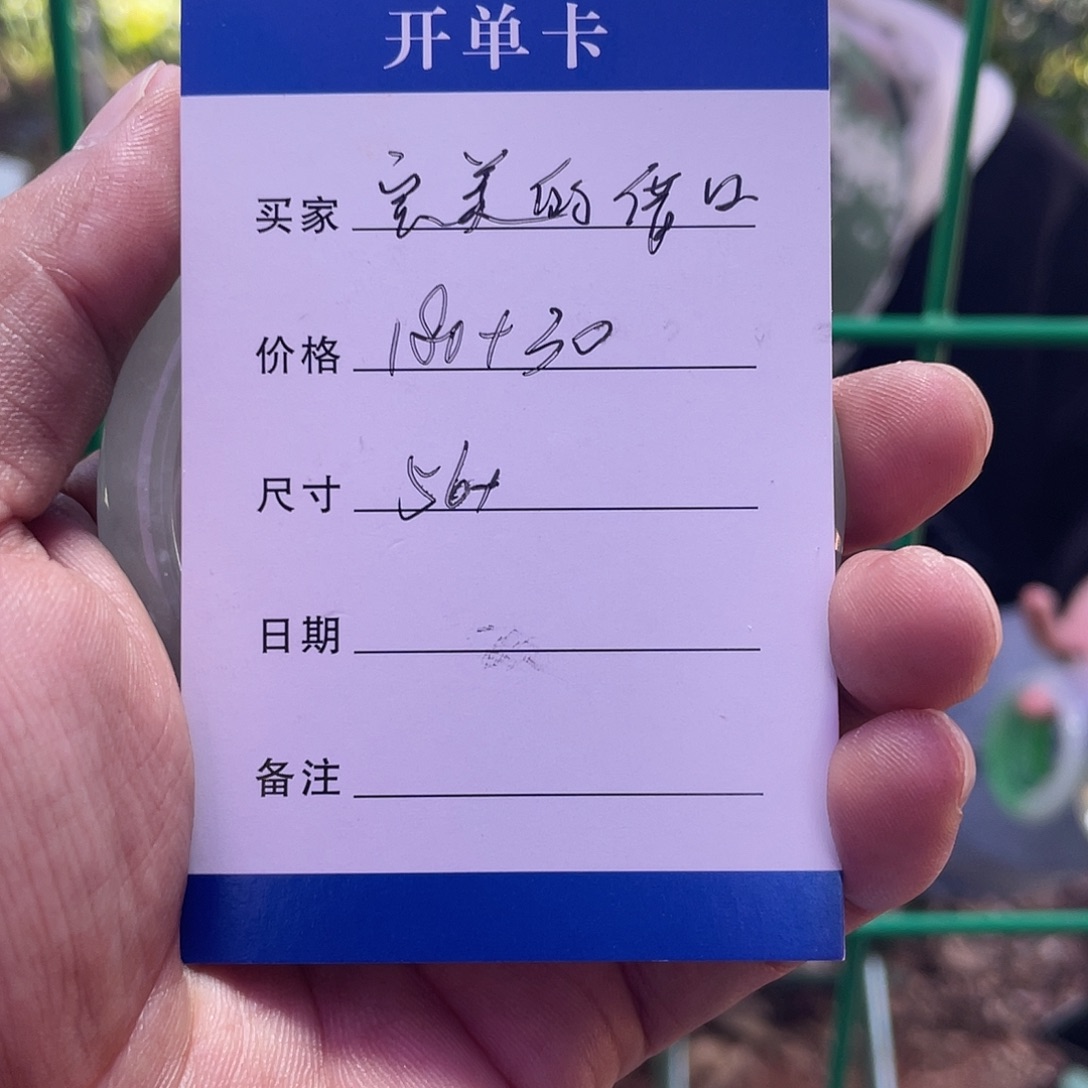 开单卡
买家 完美的借口
价格 180+30
尺寸 56+
日期
备注